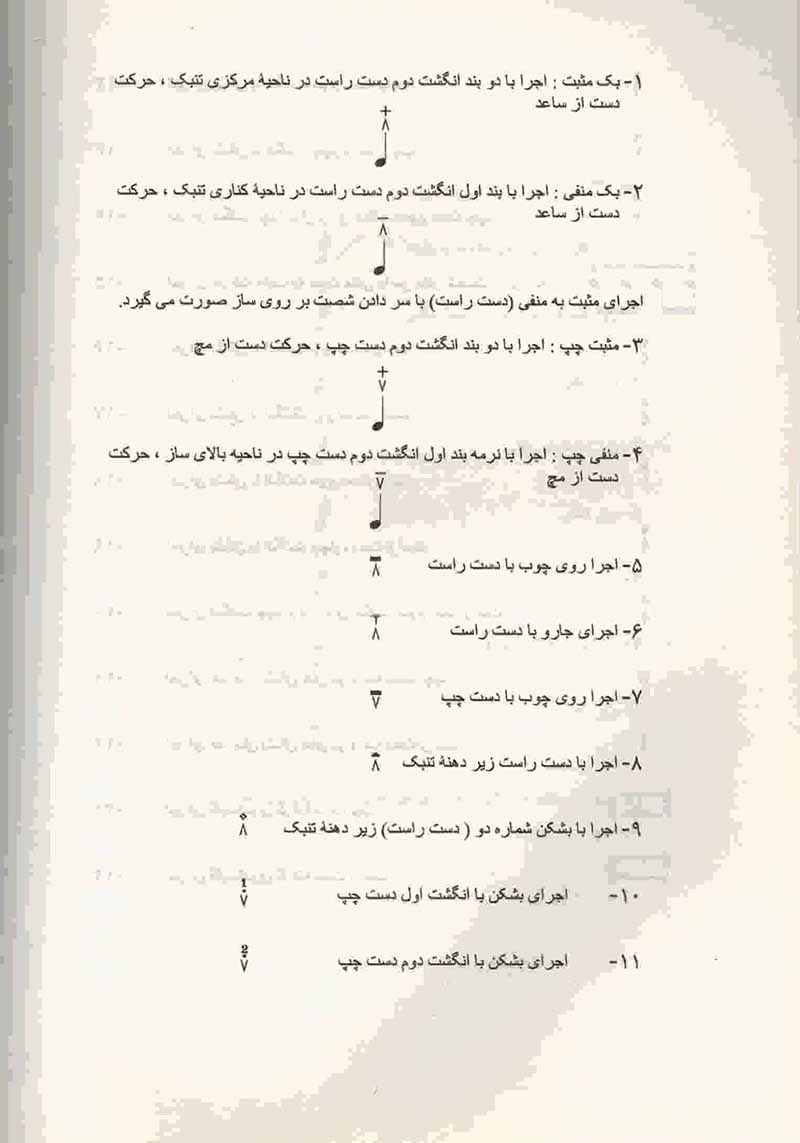 ۱- بک مثبت : اجرا با دو بند انگشت دوم دست راست در ناحیهٔ مرکزی تنبک ، حرکت
دست از ساعد
+
۸
۲- بک منفی : اجرا با بند اول انگشت دوم دست راست در ناحیهٔ کناری تنبک ، حرکت
دست از ساعد
−
۸
اجرای مثبت به منفی (دست راست) با سر دادن شصت بر روی ساز صورت می گیرد.
۳- مثبت چپ : اجرا با دو بند انگشت دوم دست چپ ، حرکت دست از مچ
+
۷
۴- منفی چپ : اجرا با نرمه بند اول انگشت دوم دست چپ در ناحیه بالای ساز ، حرکت
دست از مچ
−
۷
۵- اجرا روی چوب با دست راست ۸
۶- اجرای جارو با دست راست ۸
۷- اجرا روی چوب با دست چپ ۷
۸- اجرا با دست راست زیر دهنهٔ تنبک ۸
۹- اجرا با بشکن شماره دو ( دست راست) زیر دهنهٔ تنبک ۸
۱۰- اجرای بشکن با انگشت اول دست چپ 1 ۷
۱۱- اجرای بشکن با انگشت دوم دست چپ 2 ۷